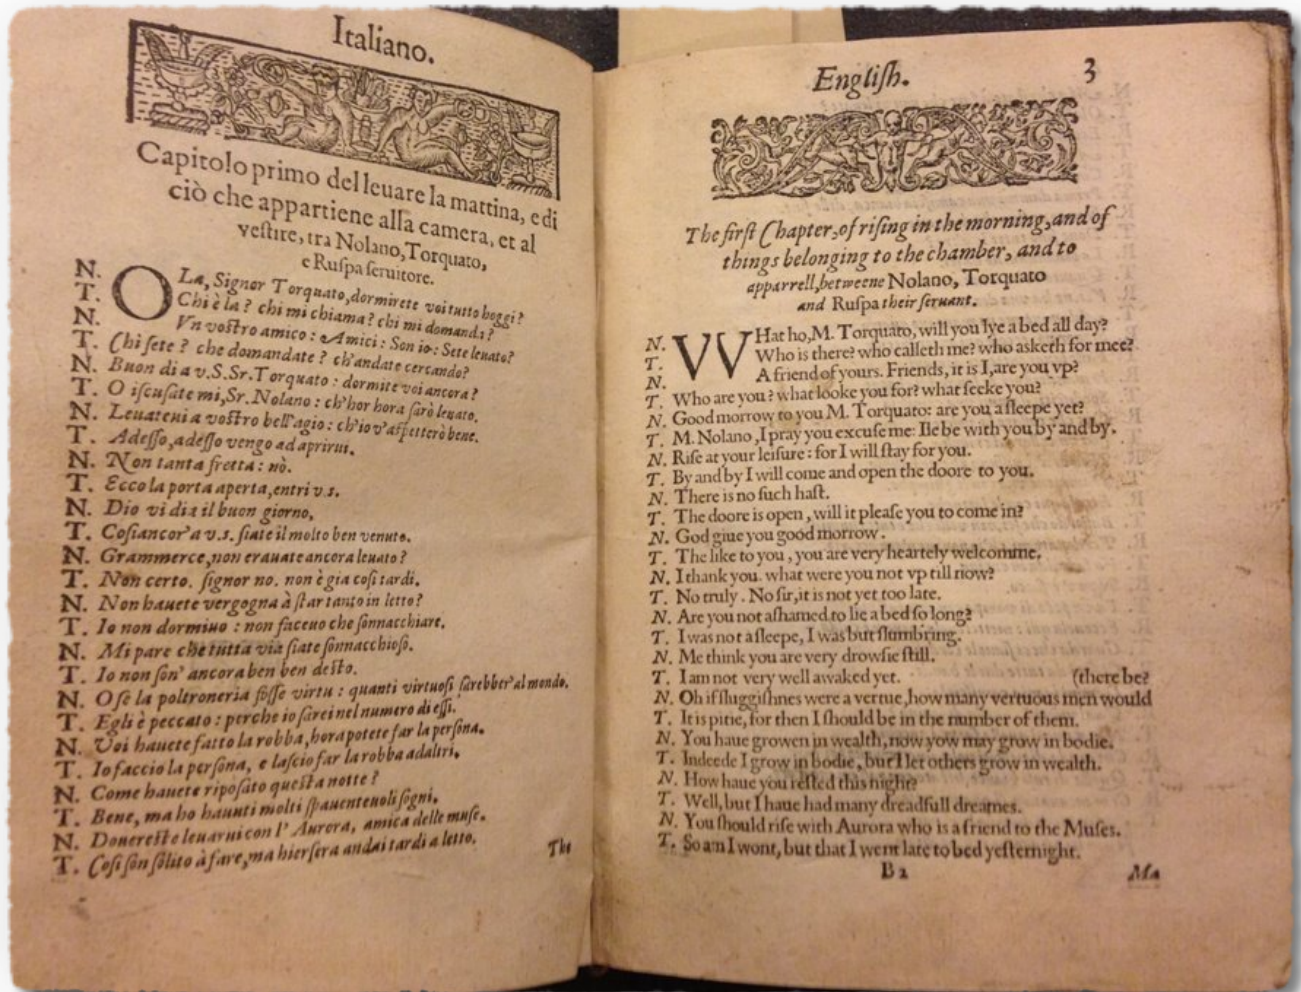 Italiano.
Capitolo primo del leuare la mattina, e di
ciò che appartiene alla camera, et al
veſtire, tra Nolano, Torquato,
e Ruſpa ſeruitore.
N. OLa, Signor Torquato, dormirete voi tutto hoggi?
T. Chi è la? chi mi chiama? chi mi domanda?
N. Vn voſtro amico: Amici: Son io: Sete leuato?
T. Chi ſete? che domandate? ch'andate cercando?
N. Buon di a v.S.Sr.Torquato: dormite voi ancora?
T. O iſcuſate mi, Sr. Nolano: ch'hor hora ſarò leuato.
N. Leuateui a voſtro bell'agio: ch'io v'aſpetterò bene.
T. Adeſſo, adeſſo vengo ad aprirui.
N. Non tanta fretta: nò.
T. Ecco la porta aperta, entri v.s.
N. Dio vi dia il buon giorno,
T. Coſi ancor'a v.s. ſiate il molto ben venuto.
N. Grammerce, non erauate ancora leuato?
T. Non certo. ſignor no. non è gia coſi tardi.
N. Non hauete vergogna à ſtar tanto in letto?
T. Io non dormiuo: non faceuo che ſonnacchiare.
N. Mi pare che tutta via ſiate ſonnacchioſo.
T. Io non ſon' ancora ben ben deſto.
N. O ſe la poltroneria foſſe virtu: quanti virtuoſi ſarebber' al mondo.
T. Egli è peccato: perche io ſarei nel numero di eſſi.
N. Voi hauete fatto la robba, hora potete far la perſona.
T. Io faccio la perſona, e laſcio far la robba ad altri.
N. Come hauete ripoſato queſta notte?
T. Bene, ma ho hauuti molti ſpauenteuoli ſogni.
N. Douereſte leuarui con l' Aurora, amica delle muſe.
T. Coſi ſon ſolito à fare, ma hierſera andai tardi a letto.
The
Engliſh. 3
The firſt Chapter, of riſing in the morning, and of
things belonging to the chamber, and to
apparrell, betweene Nolano, Torquato
and Ruſpa their ſeruant.
N. VVHat ho, M. Torquato, will you lye a bed all day?
T. Who is there? who calleth me? who asketh for mee?
N. A friend of yours. Friends, it is I, are you vp?
T. Who are you? what looke you for? what ſeeke you?
N. Good morrow to you M. Torquato: are you a ſleepe yet?
T. M. Nolano, I pray you excuſe me: Ile be with you by and by.
N. Riſe at your leiſure: for I will ſtay for you.
T. By and by I will come and open the doore to you.
N. There is no ſuch haſt.
T. The doore is open, will it pleaſe you to come in?
N. God giue you good morrow.
T. The like to you, you are very heartely welcomme.
N. I thank you. what were you not vp till now?
T. No truly. No ſir, it is not yet too late.
N. Are you not aſhamed to lie a bed ſo long?
T. I was not a ſleepe, I was but ſlumbring.
N. Me think you are very drowſie ſtill.
T. I am not very well awaked yet. (there be?
N. Oh if ſluggiſhnes were a vertue, how many vertuous men would
T. It is pitie, for then I ſhould be in the number of them.
N. You haue growen in wealth, now yow may grow in bodie.
T. Indeede I grow in bodie, but I let others grow in wealth.
N. How haue you reſted this night?
T. Well, but I haue had many dreadfull dreames.
N. You ſhould riſe with Aurora who is a friend to the Muſes.
T. So am I wont, but that I went late to bed yeſternight.
B2 Ma